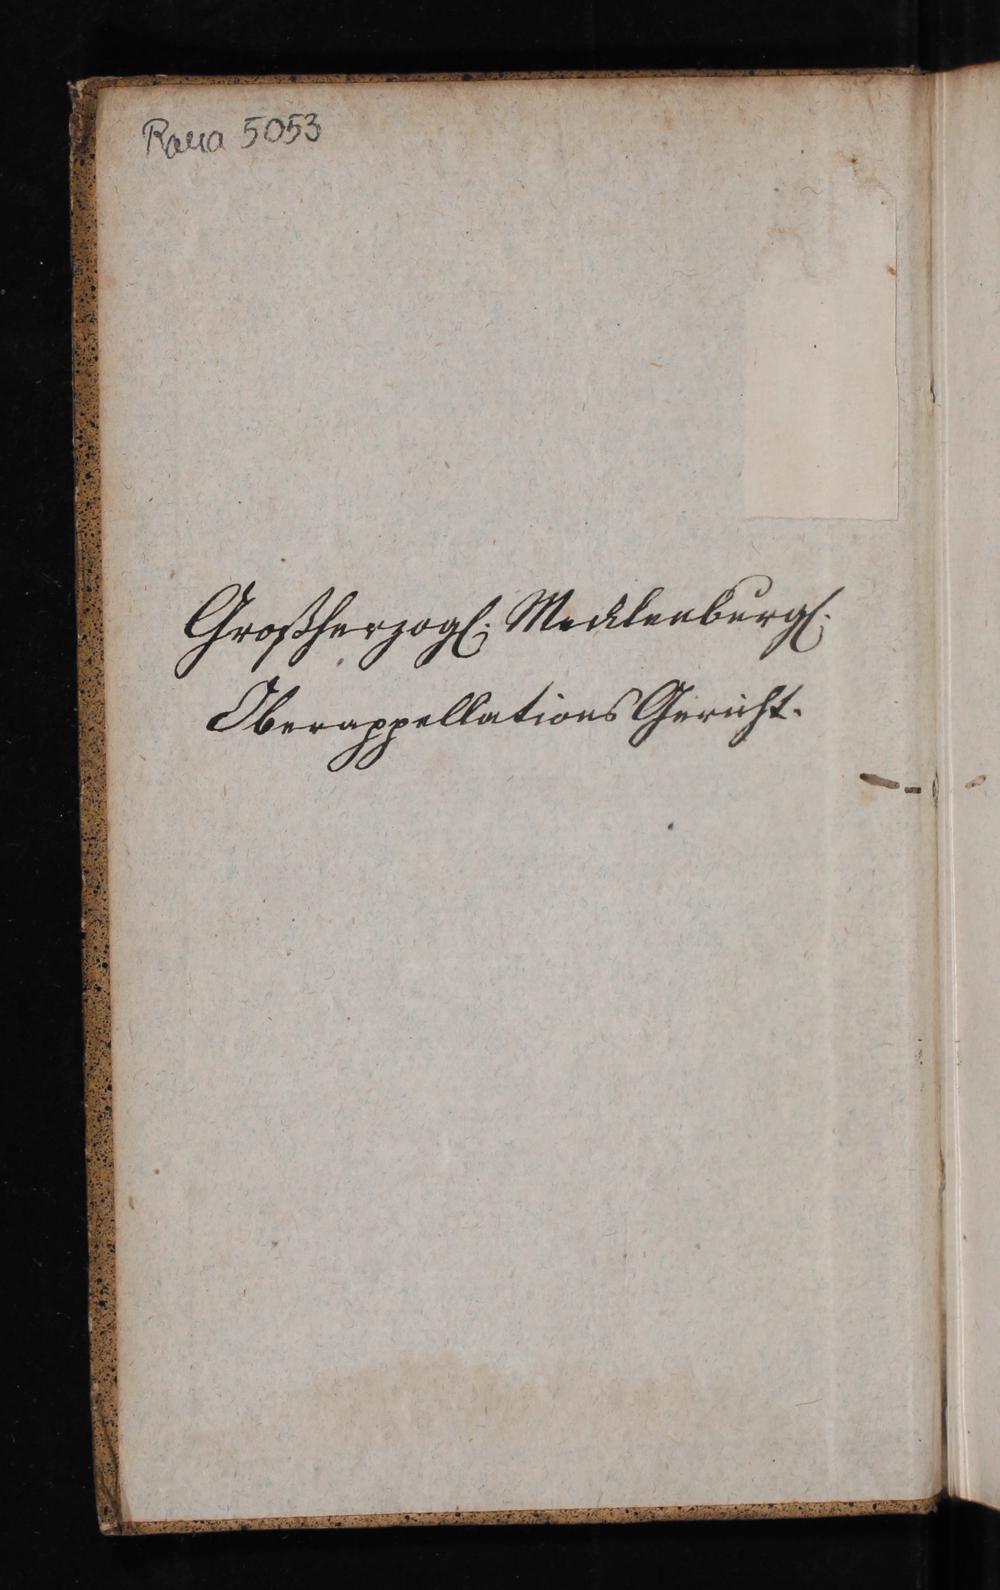 Rara 5053
Großherzogl: Mecklenburgl:
Oberappellations Gericht.